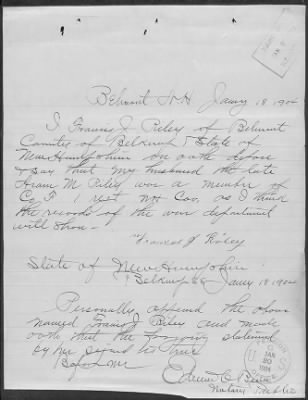 Belmont N.H. Janry 18 1904
I Frances J. Riley of Belmont
County of Belknap & State of
New Hampshire on oath depose
& say that my husband the late
Hiram M. Riley was a member of
Co. F. 1 regt NH Cav. as I think
the records of the war department
will show
Frances J. Riley
State of New Hampshire
Belknap ss Janry 18 1904
Personally appeared the above
named Frances J. Riley and made
oath that the foregoing statement
by her signed is true
Before me
Notary Public
JAN
20
1904